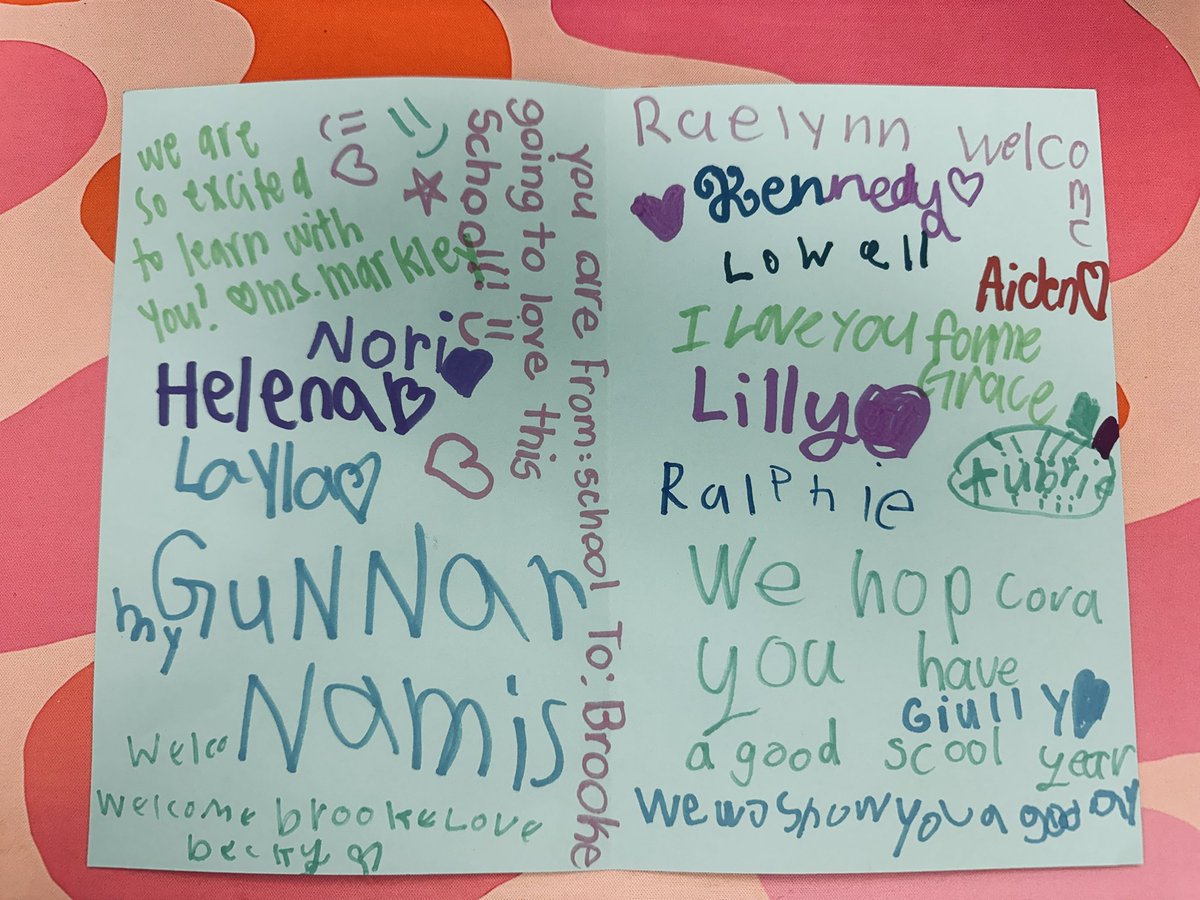 we are
so excited
to learn with
you! ms. markley
Nori
Helena
Layla
my GuNNar
Namis
Welco
Welcome brooke Love
becky
you are from: school To: Brooke
going to love this
School!!
Raelynn
Welcome
Kennedy
Lowell
Aiden
I Love You forme
Grace
Lilly
Aubrie
Ralphie
We hop Cora
you have
Giully
a good scool year
We wo show you a good